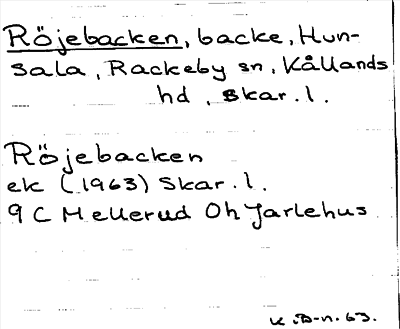 Röjebacken, backe, Hun-
sala, Rackeby sn, Kållands
hd, Skar. l.
Röjebacken
ek (1963) Skar. l.
9 C Mellerud Oh Jarlehus
K.D-n. 63.